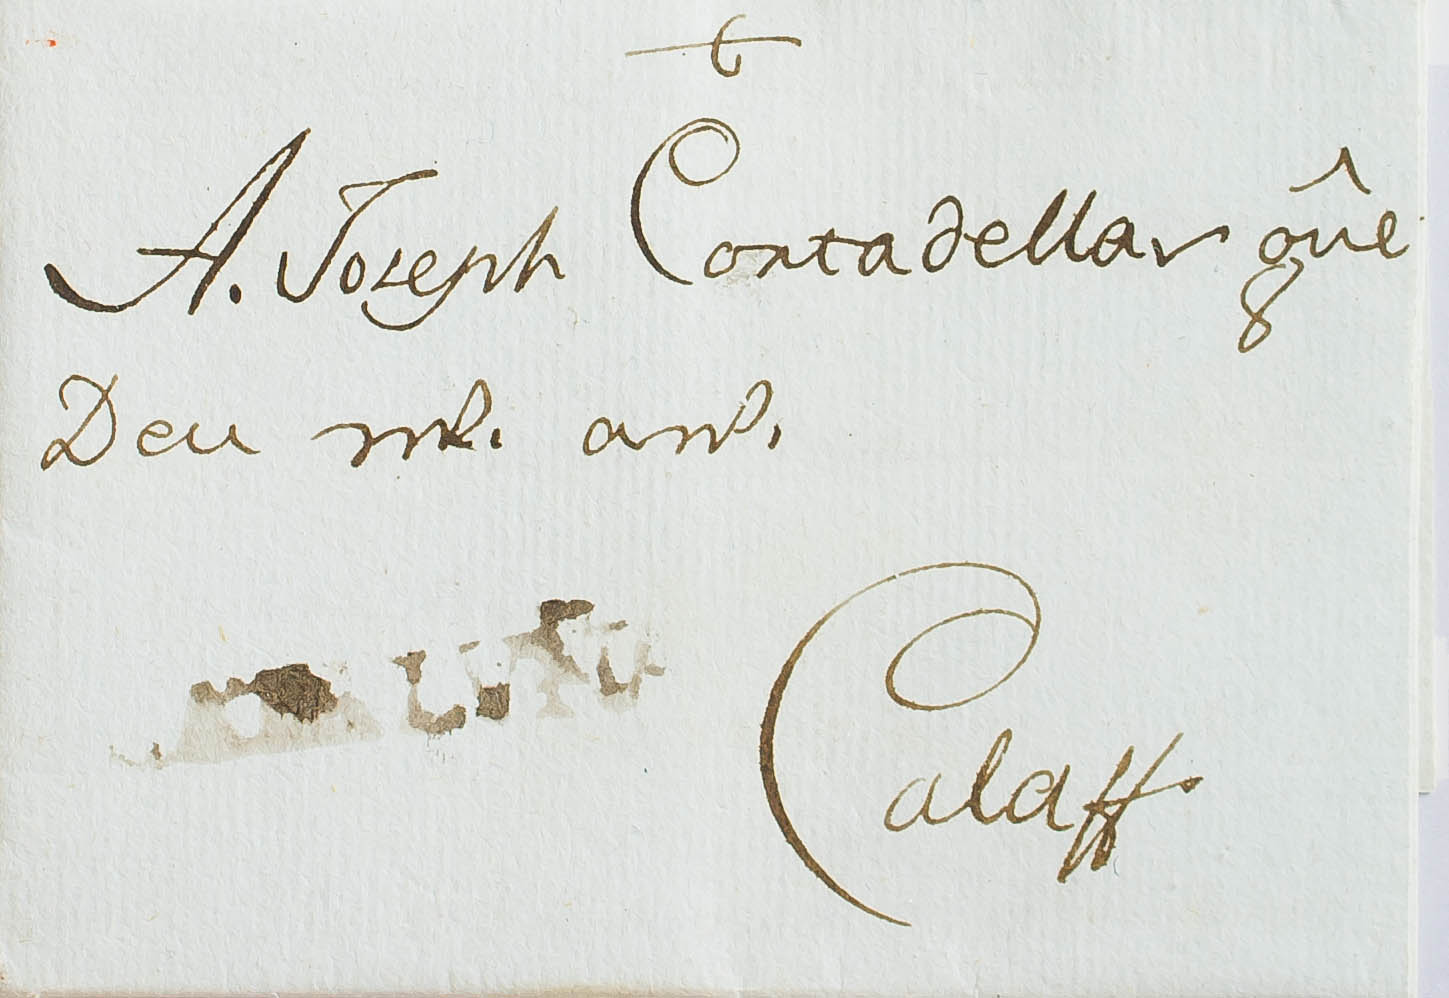 A. Joseph Cortadellas gûe
Deu mR. an.
Calaff